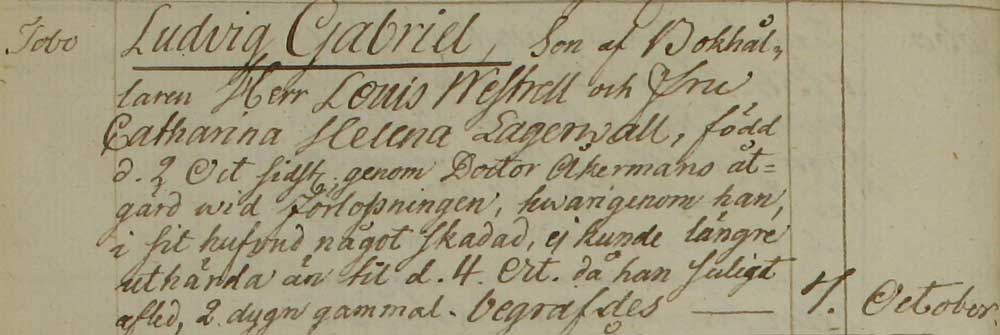 Tobo Ludvig Gabriel, Son af Bokhål„
laren Herr Louis Westrell och Fru
Catharina Helena Lagerwall, född
d. 2 Oct sidstl. genom Doctor Åkermans åt=
gärd wid Förloßningen, hwarigenom han,
i sit hufvud något skadad, ej kunde längre
uthärda än til d. 4. Oct. då han saligt
afled, 2 dygn gammal. begrafdes —— 7. October